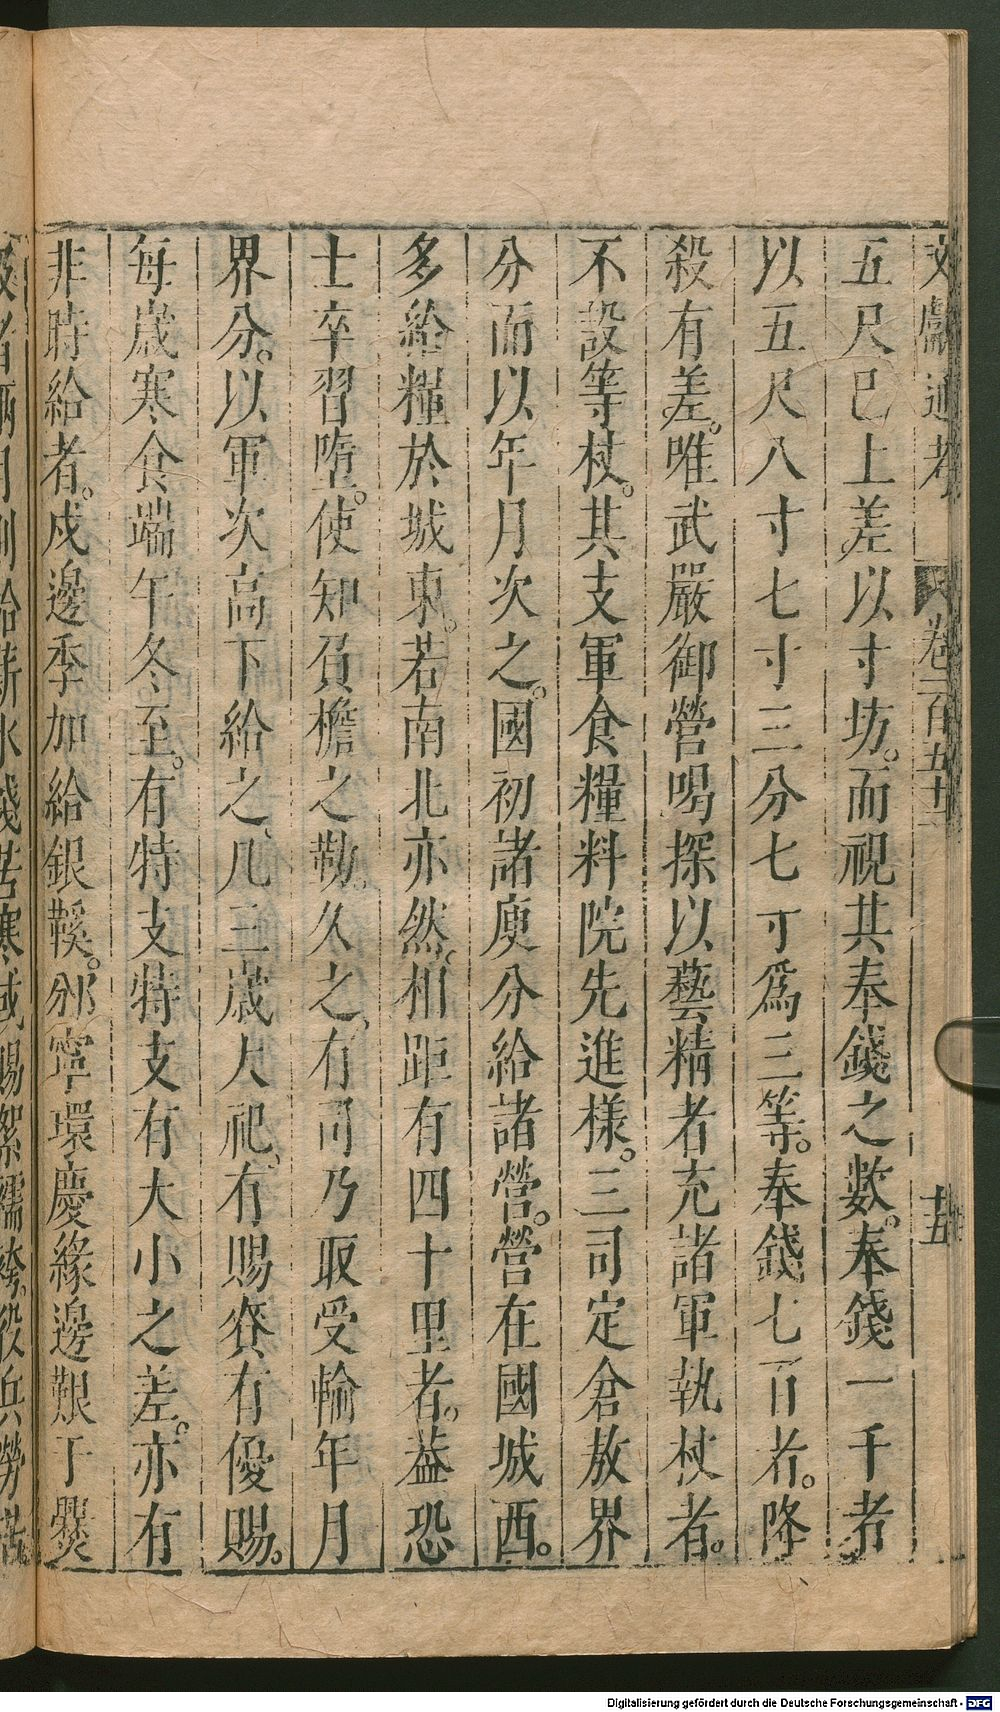 文獻通考 卷一百五十二 十五
五尺已上差以寸坊。而視其奉錢之數。奉錢一千者
以五尺八寸七寸三分七寸爲三等。奉錢七百者。降
殺有差。唯武嚴御營喝探以藝精者充諸軍執杖者。
不設等杖。其支軍食糧料院先進樣。三司定倉敖界
分而以年月次之。國初諸庾分給諸營。營在國城西。
多給糧於城東。若南北亦然。相距有四十里者。葢恐
士卒習墮。使知負檐之勤。久之、有司乃取受輸年月
界分。以軍次高下給之、凡三歲大祀、有賜賚有優賜。
每歲寒食端午冬至。有特支特支有大小之差。亦有
非時給者。戍邊季加給銀鞵。邠寧環慶緣邊艱于爨
汲者兩月別給薪水錢苦寒或賜絮襦袴。役兵勞苦。
Digitalisierung gefördert durch die Deutsche Forschungsgemeinschaft - DFG